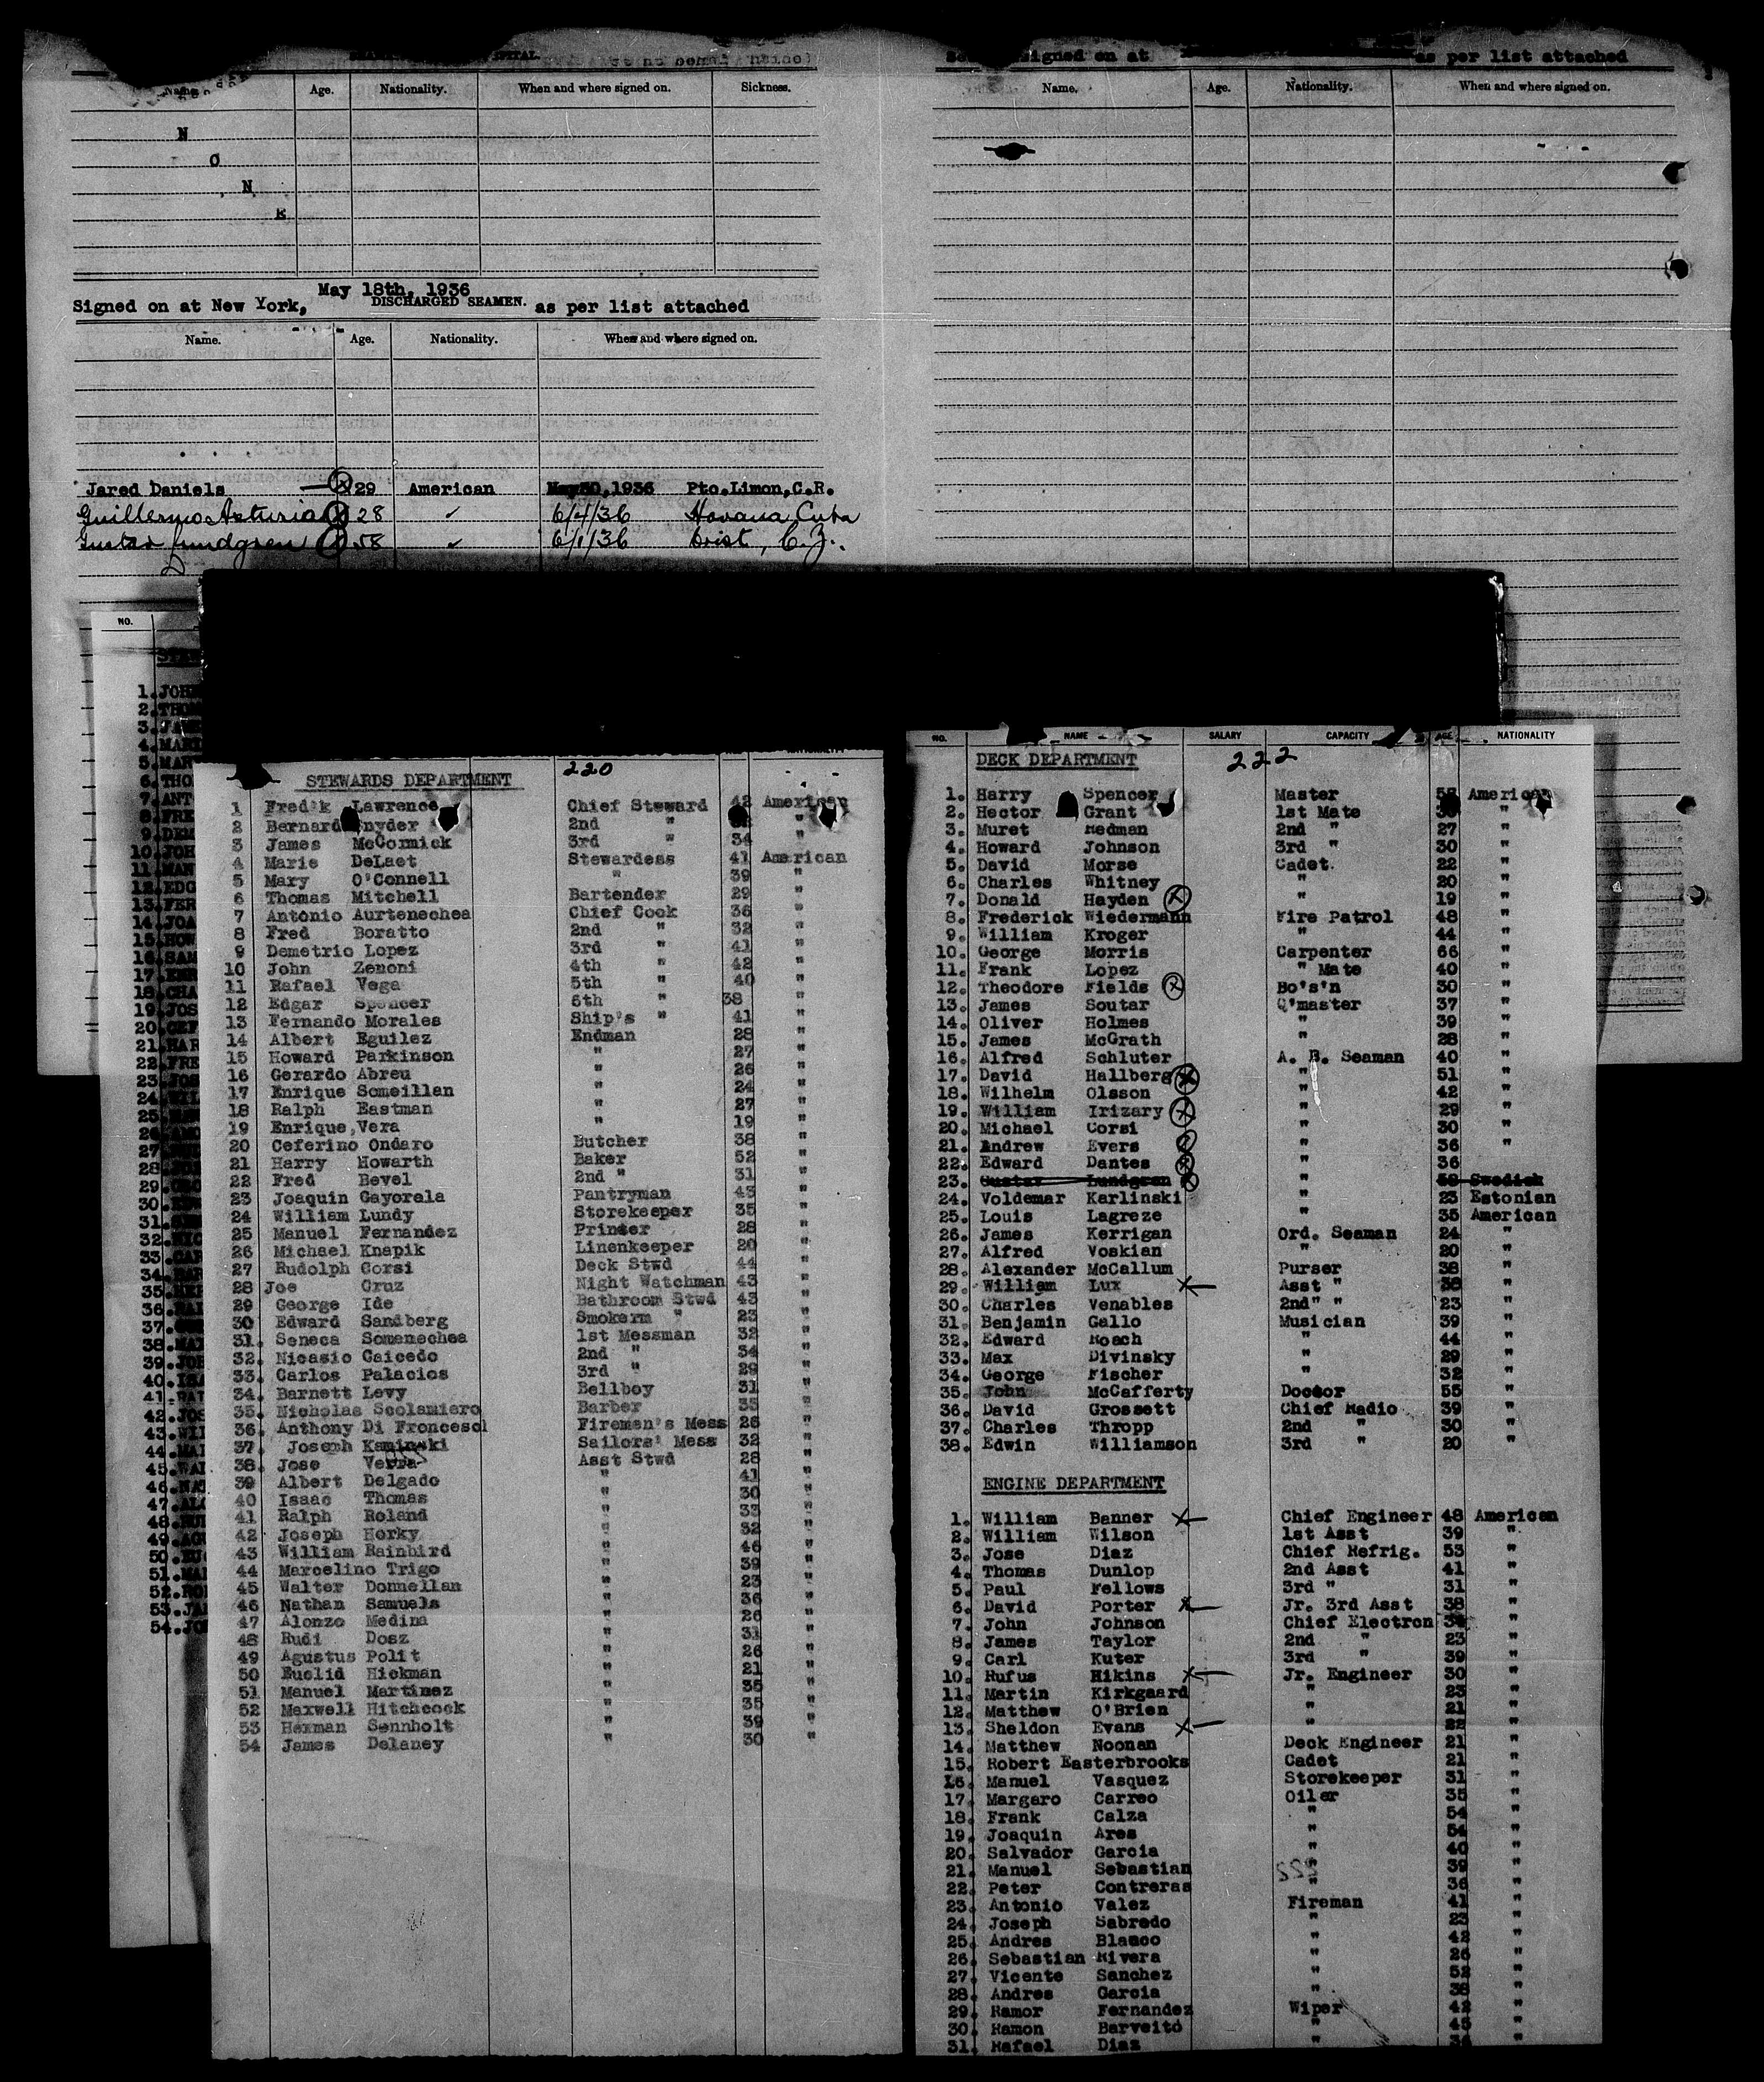 signed on at as per list attached
Name. Age. Nationality. When and where signed on. Sickness.
Name. Age. Nationality. When and where signed on.
N
O
N
E
May 18th, 1936
Signed on at New York, DISCHARGED SEAMEN. as per list attached
Name. Age. Nationality. When and where signed on.
Jared Daniels 29 American May 30, 1936 Pto.Limon,C.R.
Guillermo Asturia 28 ✓ 6/4/36 Havana Cuba
Gustav Lundgren 58 ✓ 6/1/36 Crist, C.Z.
NO.
1.JOH
2.THOM
3.JA
4.MARI
5.MAR
6.THO
7.ANT
8.FRE
9.DEM
10.JOH
11.MAN
12.EDG
13.FER
14.JOA
15.HOW
16.SAM
17.
18.CHA
19.JOS
20.CEF
21.HAR
22.FRE
23.JOS
24.
25.
26.
27.
28.
29.
30.
31.
32.
33.CAR
34.BAR
35.
36.
37.
38.
39.JOH
40.ISA
41.RAL
42.JOS
43.WIL
44.MAR
45.WAL
46.NAT
47.ALO
48.
49.AGU
50.EU
51.MAN
52.
53.JA
54.JO
STEWARDS DEPARTMENT 220
1 Fred'k Lawrence Chief Steward 42 American
2 Bernard Snyder 2nd " "
3 James McCormick 3rd " 34 "
4 Marie DeLaet Stewardess 41 American
5 Mary O'Connell " 39 "
6 Thomas Mitchell Bartender 29 "
7 Antonio Aurtenechea Chief Cook 36 "
8 Fred Boratto 2nd " 32 "
9 Demetrio Lopez 3rd " 41 "
10 John Zenoni 4th " 42 "
11 Rafael Vega 5th " 40 "
12 Edgar Spencer 6th " 38 "
13 Fernando Morales Ship's " 41 "
14 Albert Eguilez Endman 28 "
15 Howard Parkinson " 27 "
16 Gerardo Abreu " 26 "
17 Enrique Someillan " 24 "
18 Ralph Eastman " 27 "
19 Enrique,Vera " 19 "
20 Ceferino Ondaro Butcher 38 "
21 Harry Howarth Baker 52 "
22 Fred Bevel 2nd " 31 "
23 Joaquin Gayorela Pantryman 43 "
24 William Lundy Storekeeper 35 "
25 Manuel Fernandez Printer 28 "
26 Michael Knapik Linenkeeper 20 "
27 Rudolph Corsi Deck Stwd 44 "
28 Joe Cruz Night Watchman 43 "
29 George Ide Bathroom Stwd 43 "
30 Edward Sandberg Smokerm " 23 "
31. Seneca Somenechea 1st Messman 32 "
32. Nicasio Caicedo 2nd " 34 "
33. Carlos Palacios 3rd " 29 "
34. Barnett Levy Bellboy 31 "
35. Nicholas Scolamiero Barber 35 "
36. Anthony Di Froncesol Firemen's Mess 26 "
37. Joseph Kaminski Sailors' Mess 32 "
38. Jose Verra Asst Stwd 28 "
39 Albert Delgado " 41 "
40 Isaac Thomas " 30 "
41 Ralph Roland " 33 "
42 Joseph Horky " 32 "
43 William Rainbird " 46 "
44 Marcelino Trigo " 39 "
45 Walter Donnellan " 23 "
46 Nathan Samuels " 36 "
47 Alonzo Medina " 26 "
48 Rudi Dosz " 31 "
49 Agustus Polit " 26 "
50 Euclid Hickman " 21 "
51 Manuel Martinez " 35 "
52 Maxwell Hitchcock " 35 "
53 Herman Sennholt " 39 "
54 James Delaney " 30 "
NO. NAME SALARY CAPACITY AGE NATIONALITY
DECK DEPARTMENT 222
1. Harry Spencer Master American
2. Hector Grant 1st Mate "
3. Muret Redman 2nd " 27 "
4. Howard Johnson 3rd " 30 "
5. David Morse Cadet. 22 "
6. Charles Whitney " 20 "
7. Donald Hayden " 19 "
8. Frederick Wiedermann Fire Patrol 48 "
9. William Kroger " 44 "
10. George Morris Carpenter 66 "
11. Frank Lopez " Mate 40 "
12. Theodore Fields Bo's'n 30 "
13. James Soutar Q'master 37 "
14. Oliver Holmes " 39 "
15. James McGrath " 28 "
16. Alfred Schluter A. B. Seaman 40 "
17. David Hallberg " 51 "
18. Wilhelm Olsson " 42 "
19. William Irizary " 29 "
20. Michael Corsi " 30 "
21. Andrew Evers " 36 "
22. Edward Dantes " 36
23. Gustav Lundgren " 58 Swedish
24. Voldemar Karlinski " 23 Estonian
25. Louis Lagreze " 35 American
26. James Kerrigan Ord. Seaman 24 "
27. Alfred Voskian " 20 "
28. Alexander McCallum Purser 38 "
29. William Lux Asst " 38 "
30. Charles Venables 2nd" " 23 "
31. Benjamin Gallo Musician 39 "
32. Edward Roach " 44 "
33. Max Divinsky " 29 "
34. George Fischer " 32 "
35. John McCafferty Doctor 55 "
36. David Grossett Chief Radio 39 "
37. Charles Thropp 2nd " 30 "
38. Edwin Williamson 3rd " 20 "
ENGINE DEPARTMENT
1. William Banner Chief Engineer 48 American
2. William Wilson 1st Asst 39 "
3. Jose Diaz Chief Refrig. 53 "
4. Thomas Dunlop 2nd Asst 41 "
5. Paul Fellows 3rd " 31 "
6. David Porter Jr. 3rd Asst 38 "
7. John Johnson Chief Electron "
8. James Taylor 2nd " 23 "
9. Carl Kuter 3rd " 39 "
10. Rufus Hikins Jr. Engineer 30 "
11. Martin Kirkgaard " 23 "
12. Matthew O'Brien " 21 "
13. Sheldon Evans " 22 "
14. Matthew Noonan Deck Engineer 21 "
15. Robert Easterbrooks Cadet 21 "
16. Manuel Vasquez Storekeeper 31 "
17. Margaro Carreo Oiler 35 "
18. Frank Calza " 54 "
19. Joaquin Ares " 54 "
20. Salvador Garcia " 40 "
21. Manuel Sebastian " 39 "
22. Peter Contreras " 36 "
23. Antonio Valez Fireman 41 "
24. Joseph Sabredo " 23 "
25. Andres Blanco " 42 "
26. Sebastian Rivera " 26 "
27. Vicente Sanchez " 52 "
28. Andres Garcia " 38 "
29. Ramor Fernandez Wiper 42 "
30. Ramon Barveito " 45 "
31. Rafael Diaz " "